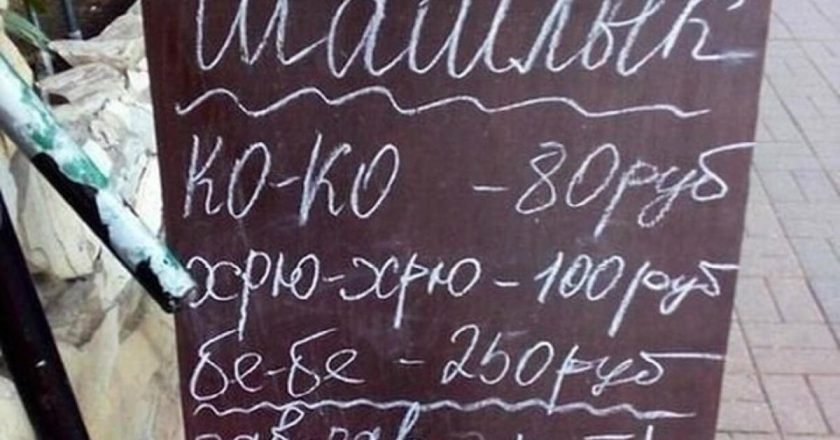 Шашлык
ко-ко - 80 руб
хрю-хрю - 100 руб
бе-бе - 250 руб